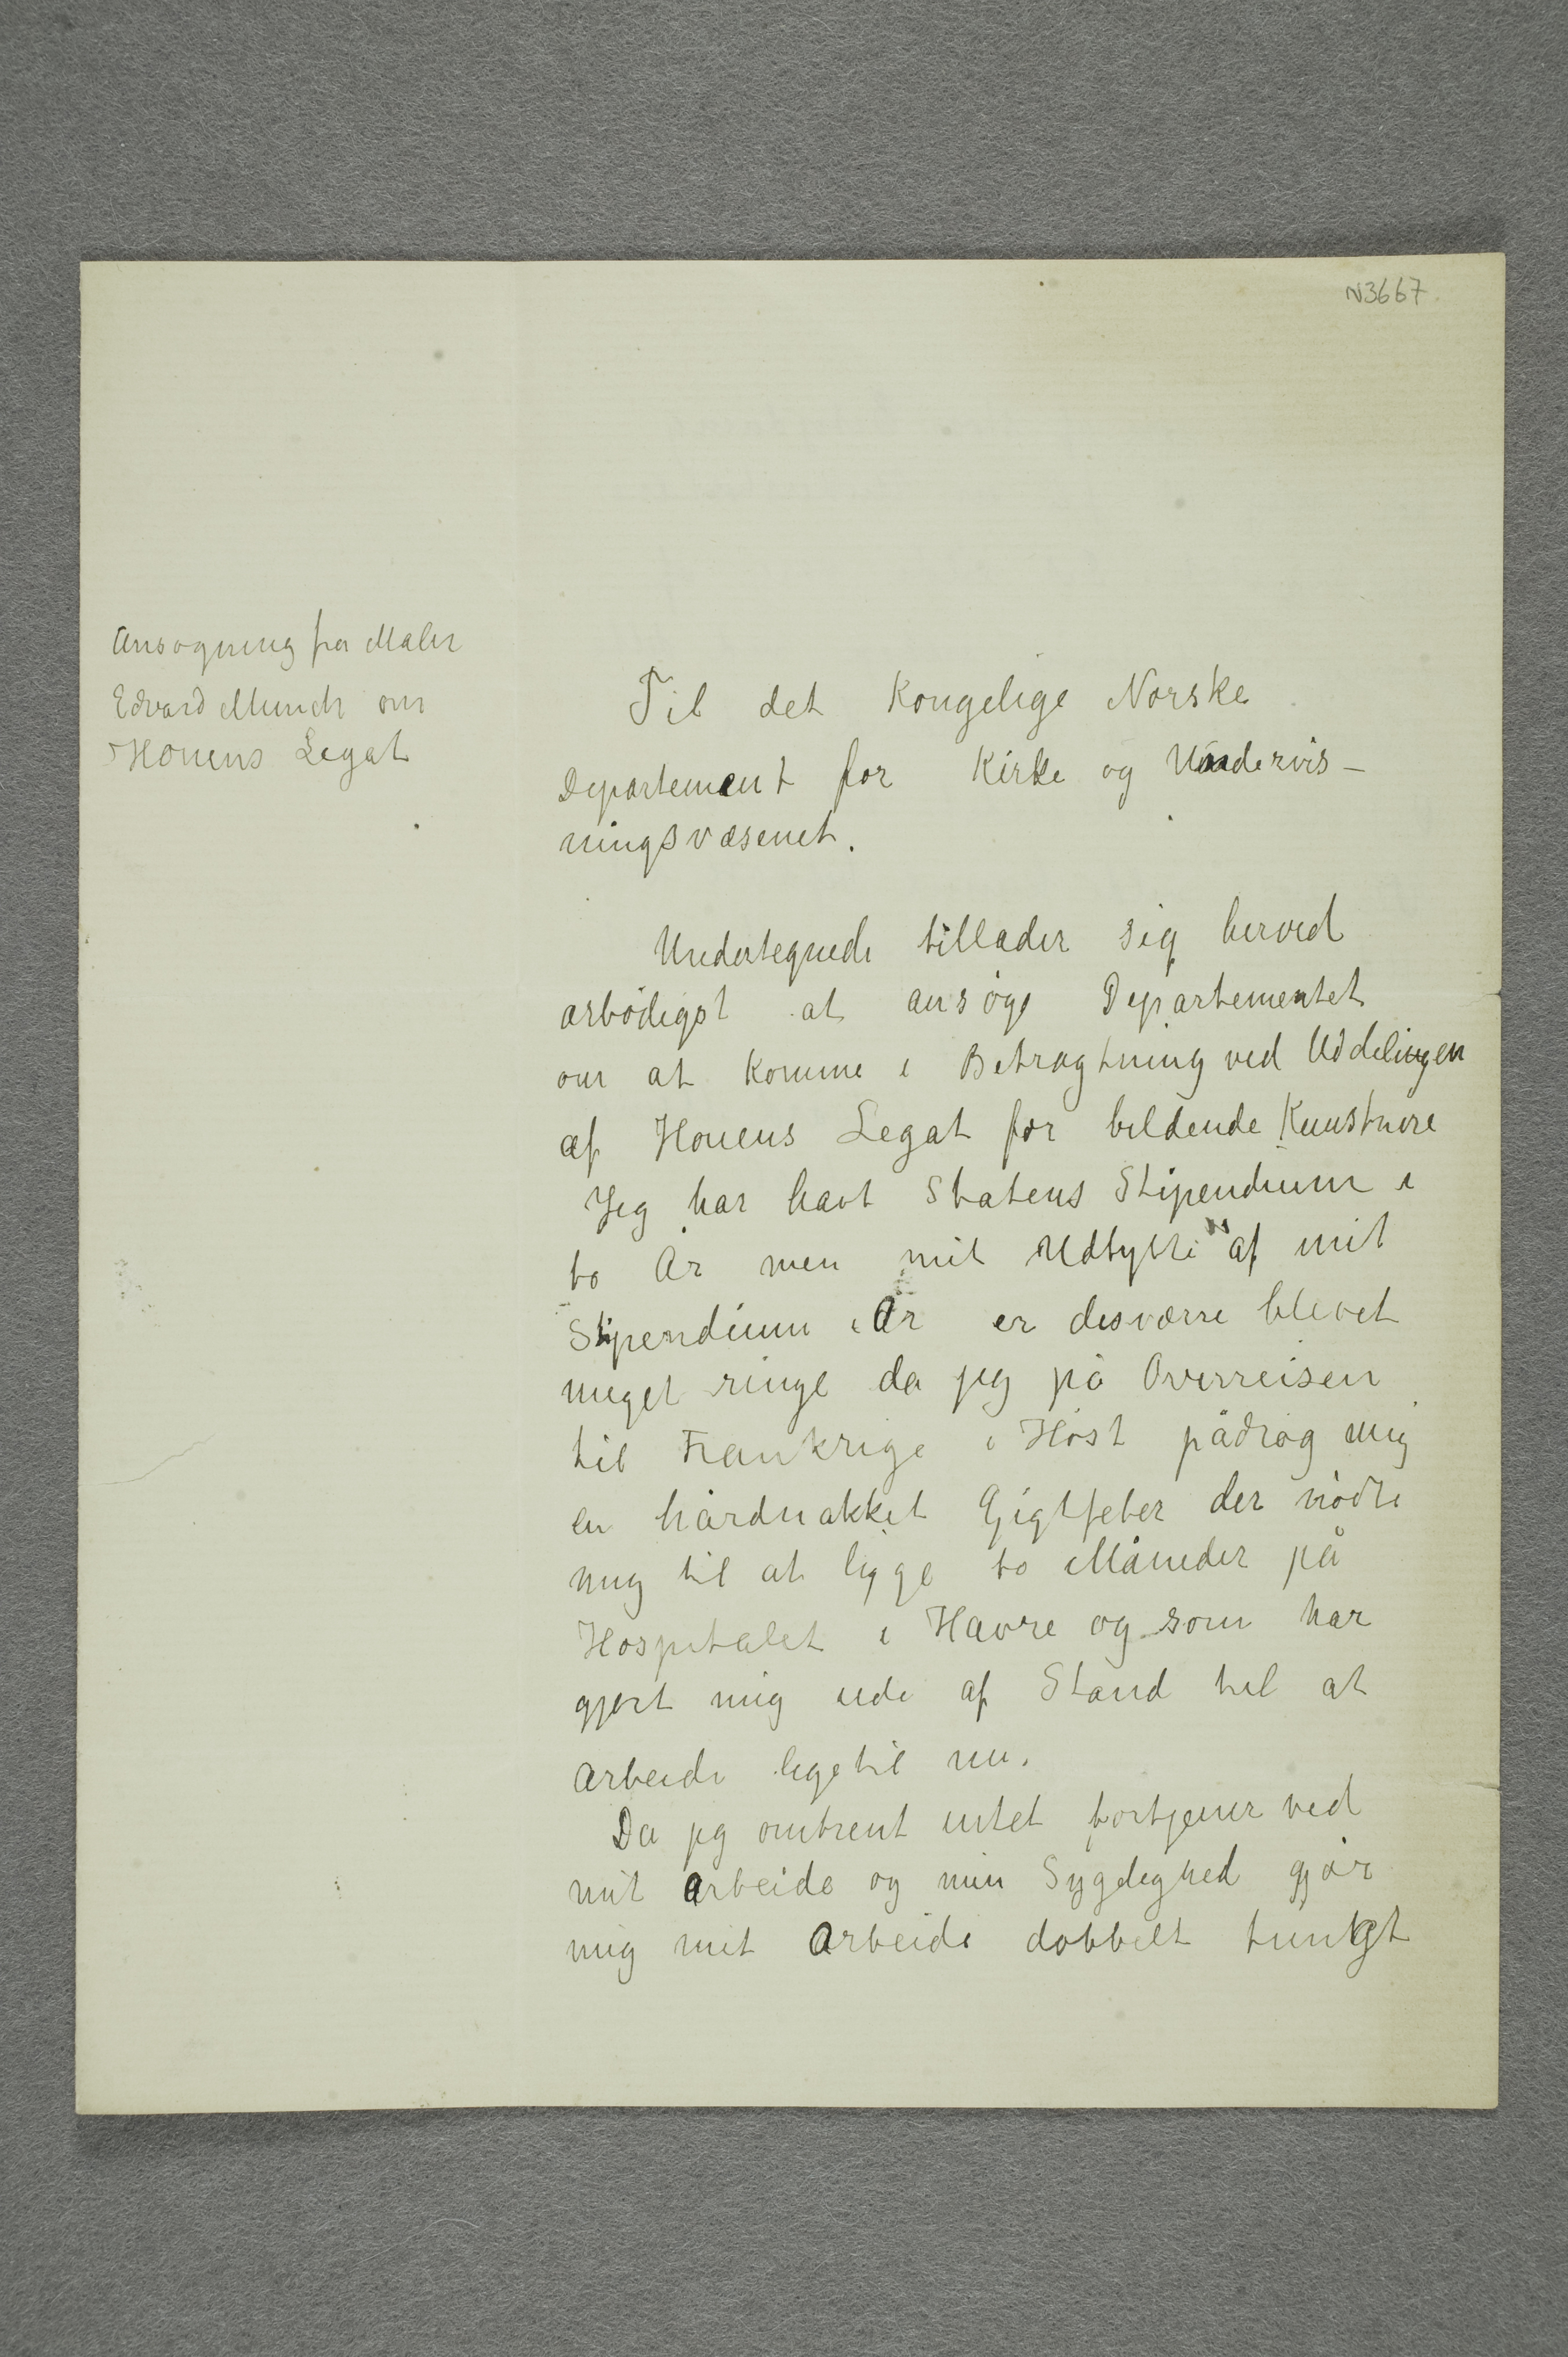 N3667.
Ansøgning fra Maler
Edvard Munch om
Houens Legat
Til det Kongelige Norske
Departement for Kirke og Undervis-
ningsvæsenet.
Undertegnede tillader sig herved
ærbødigst at ansøge Departementet
om at komme i Betragtning ved Uddelingen
af Houens Legat for bildende Kunstnere
Jeg har havt Statens Stipendium i
to År men mit Udbytte af mit
Stipendium i År er desværre blevet
meget ringe da jeg på Overreisen
til Frankrige i Høst pådrog mig
en hårdnakket Gigtfeber der nødte
mig til at ligge to Måneder på
Hospitalet i Havre og som har
gjort mig ude af Stand til at
arbeide ligetil nu.
Da jeg omtrent intet fortjener ved
mit Arbeide og min Sygelighed gjør
mig mit Arbeide dobbelt tungt